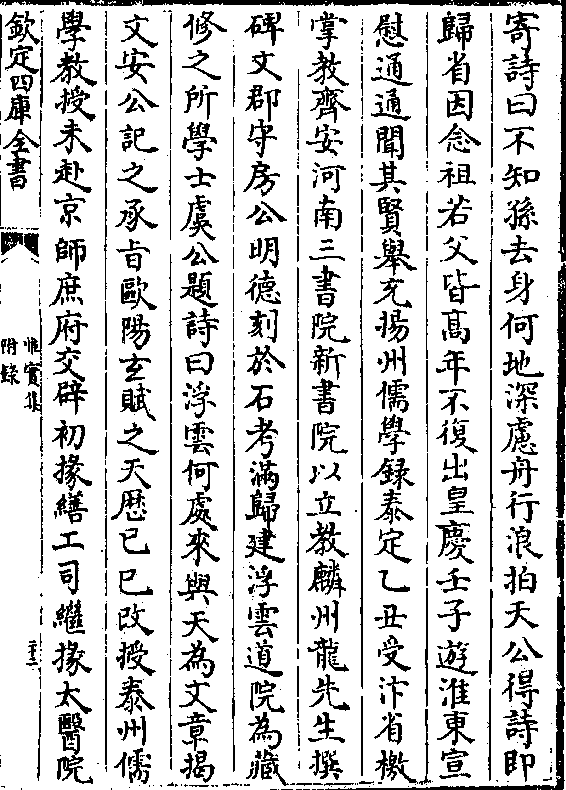 寄詩曰不知孫去身何地深慮舟行浪拍天公得詩即
歸省因念祖若父皆髙年不復出皇慶壬子遊淮東宣
慰通通聞其賢舉充揚州儒學録泰定乙丑受汴省檄
掌教齊安河南三書院新書院以立教麟州龍先生撰
碑文郡守房公明德刻於石考滿歸建浮雲道院為藏
修之所學士虞公題詩曰浮雲何處來與天為文章揭
文安公記之承旨歐陽玄賦之天歴已巳改授泰州儒
學教授未赴京師庶府交辟初掾繕工司繼掾太醫院
欽定四庫全書
惟實集
附録